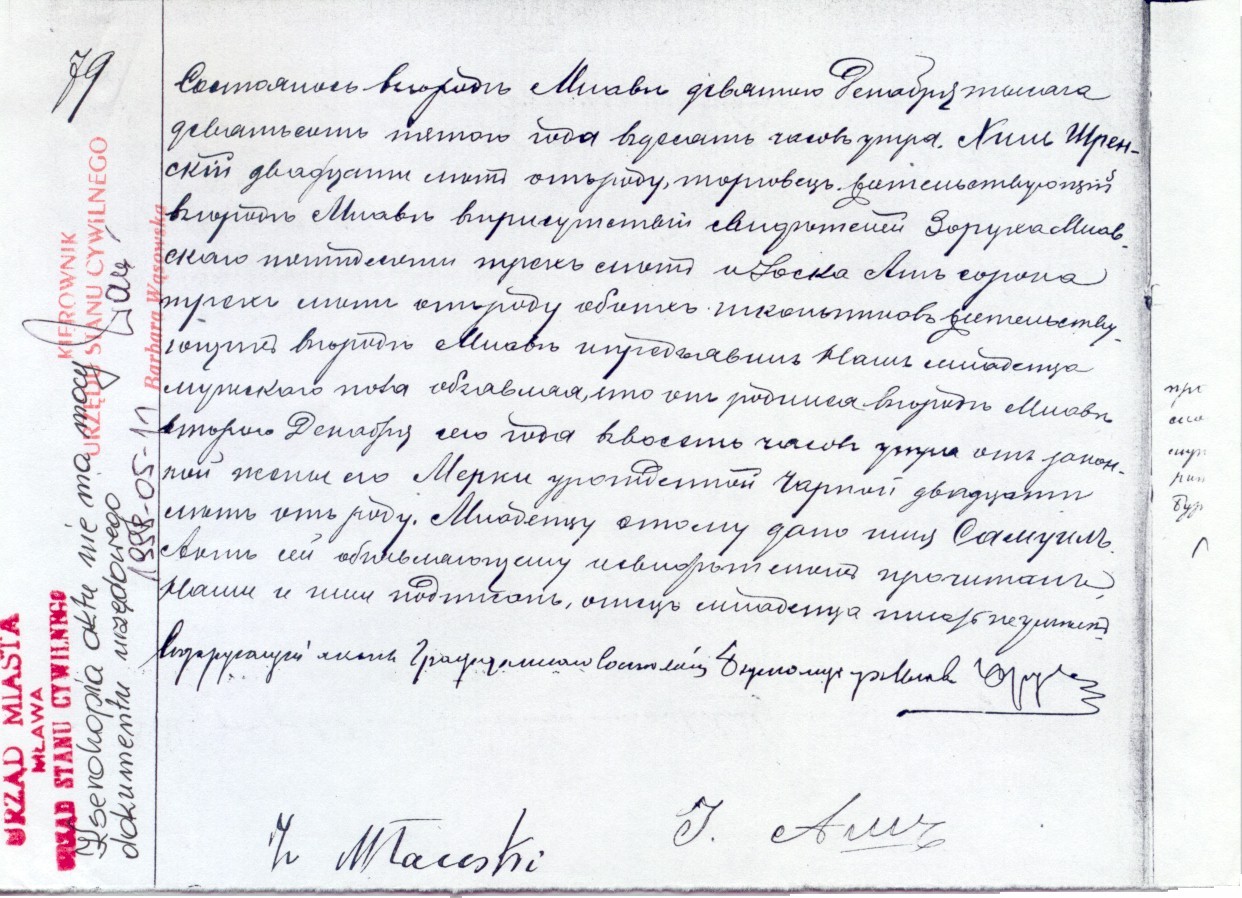 79
Состоялось въ городѣ Млавѣ девятаго Декабря тысяча
девятьсотъ пятого года въ десять часовъ утра. Хиль Щрен-
скій двадцати лѣтъ отъ роду, торговецъ жительствующій
въ городѣ Млавѣ въ присутствіи свидѣтелей Зоруха Млав-
скаго пятидесяти трехъ лѣтъ и Іоска Ашъ сорока
трехъ лѣтъ отъ роду обоихъ школьниковъ жительству-
ющихъ въ городѣ Млавѣ и предъявилъ Намъ младенца
мужскаго пола объявляя, что онъ родился въ городѣ Млавѣ
второго Декабря сего года въ восемь часовъ утра отъ закон-
ной жены его Мерки урожденной Чарной двадцати
лѣтъ отъ роду. Младенцу этому дано имя Самуилъ.
Актъ сей объявляющему и свидѣтелямъ прочитанъ,
Нами и ими подписанъ, отецъ младенца писать неумѣетъ
Содержащій акты Гражданскаго Состоянія Бурмистръ г. Млавы
Z Mławski
І. Ашъ
Kserokopia aktu nie ma mocy
dokumentu urzędowego
1998-05-11
KIEROWNIK
URZĘDU STANU CYWILNEGO
Barbara Wąsowska
URZĄD MIASTA
MŁAWA
URZĄD STANU CYWILNEGO